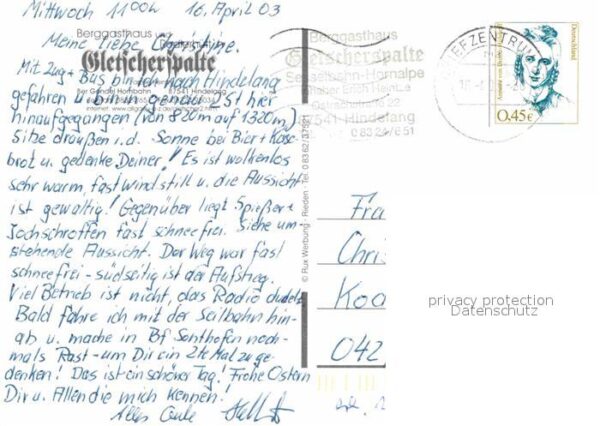 Mittwoch 11 00h 16. April 03
Meine liebe Christine.
Berggasthaus
Gletscherspalte
Mit Zug + Bus bin ich nach Hindelang
gefahren u. bin genau 2 St hier
hinaufgegangen (von 820m auf 1320m).
Sitze draußen i.d. Sonne bei Bier + Käse
brot u. gedenke Deiner! Es ist wolkenlos
sehr warm, fast windstill u. die Aussicht
ist gewaltig! Gegenüber liegt Spießer +
Jochschroffen fast schneefrei. Siehe um-
stehende Aussicht. Der Weg war fast
schneefrei - südseitig ist der Aufstieg.
Viel Betrieb ist nicht, das Radio dudelt.
Bald fahre ich mit der Seilbahn hin-
ab u. mache in Bf Sonthofen noch-
mals Rast - um Dir ein 2tes Mal zu ge-
denken! Das ist ein schöner Tag! Frohe Ostern
Dir u. Allen die mich kennen!
Alles Gute
© Rux Werbung · Rieden · Tel. 0 83 62 / 37921
Berggasthaus
Gletscherspalte
Sesselbahn-Hornalpe
Erich
Ostrachstraße 22
87541 Hindelang
0 83 24/6 51
BRIEFZENTRUM
Deutschland
0,45€
Fra
Chris
Koa
042
privacy protection
Datenschutz